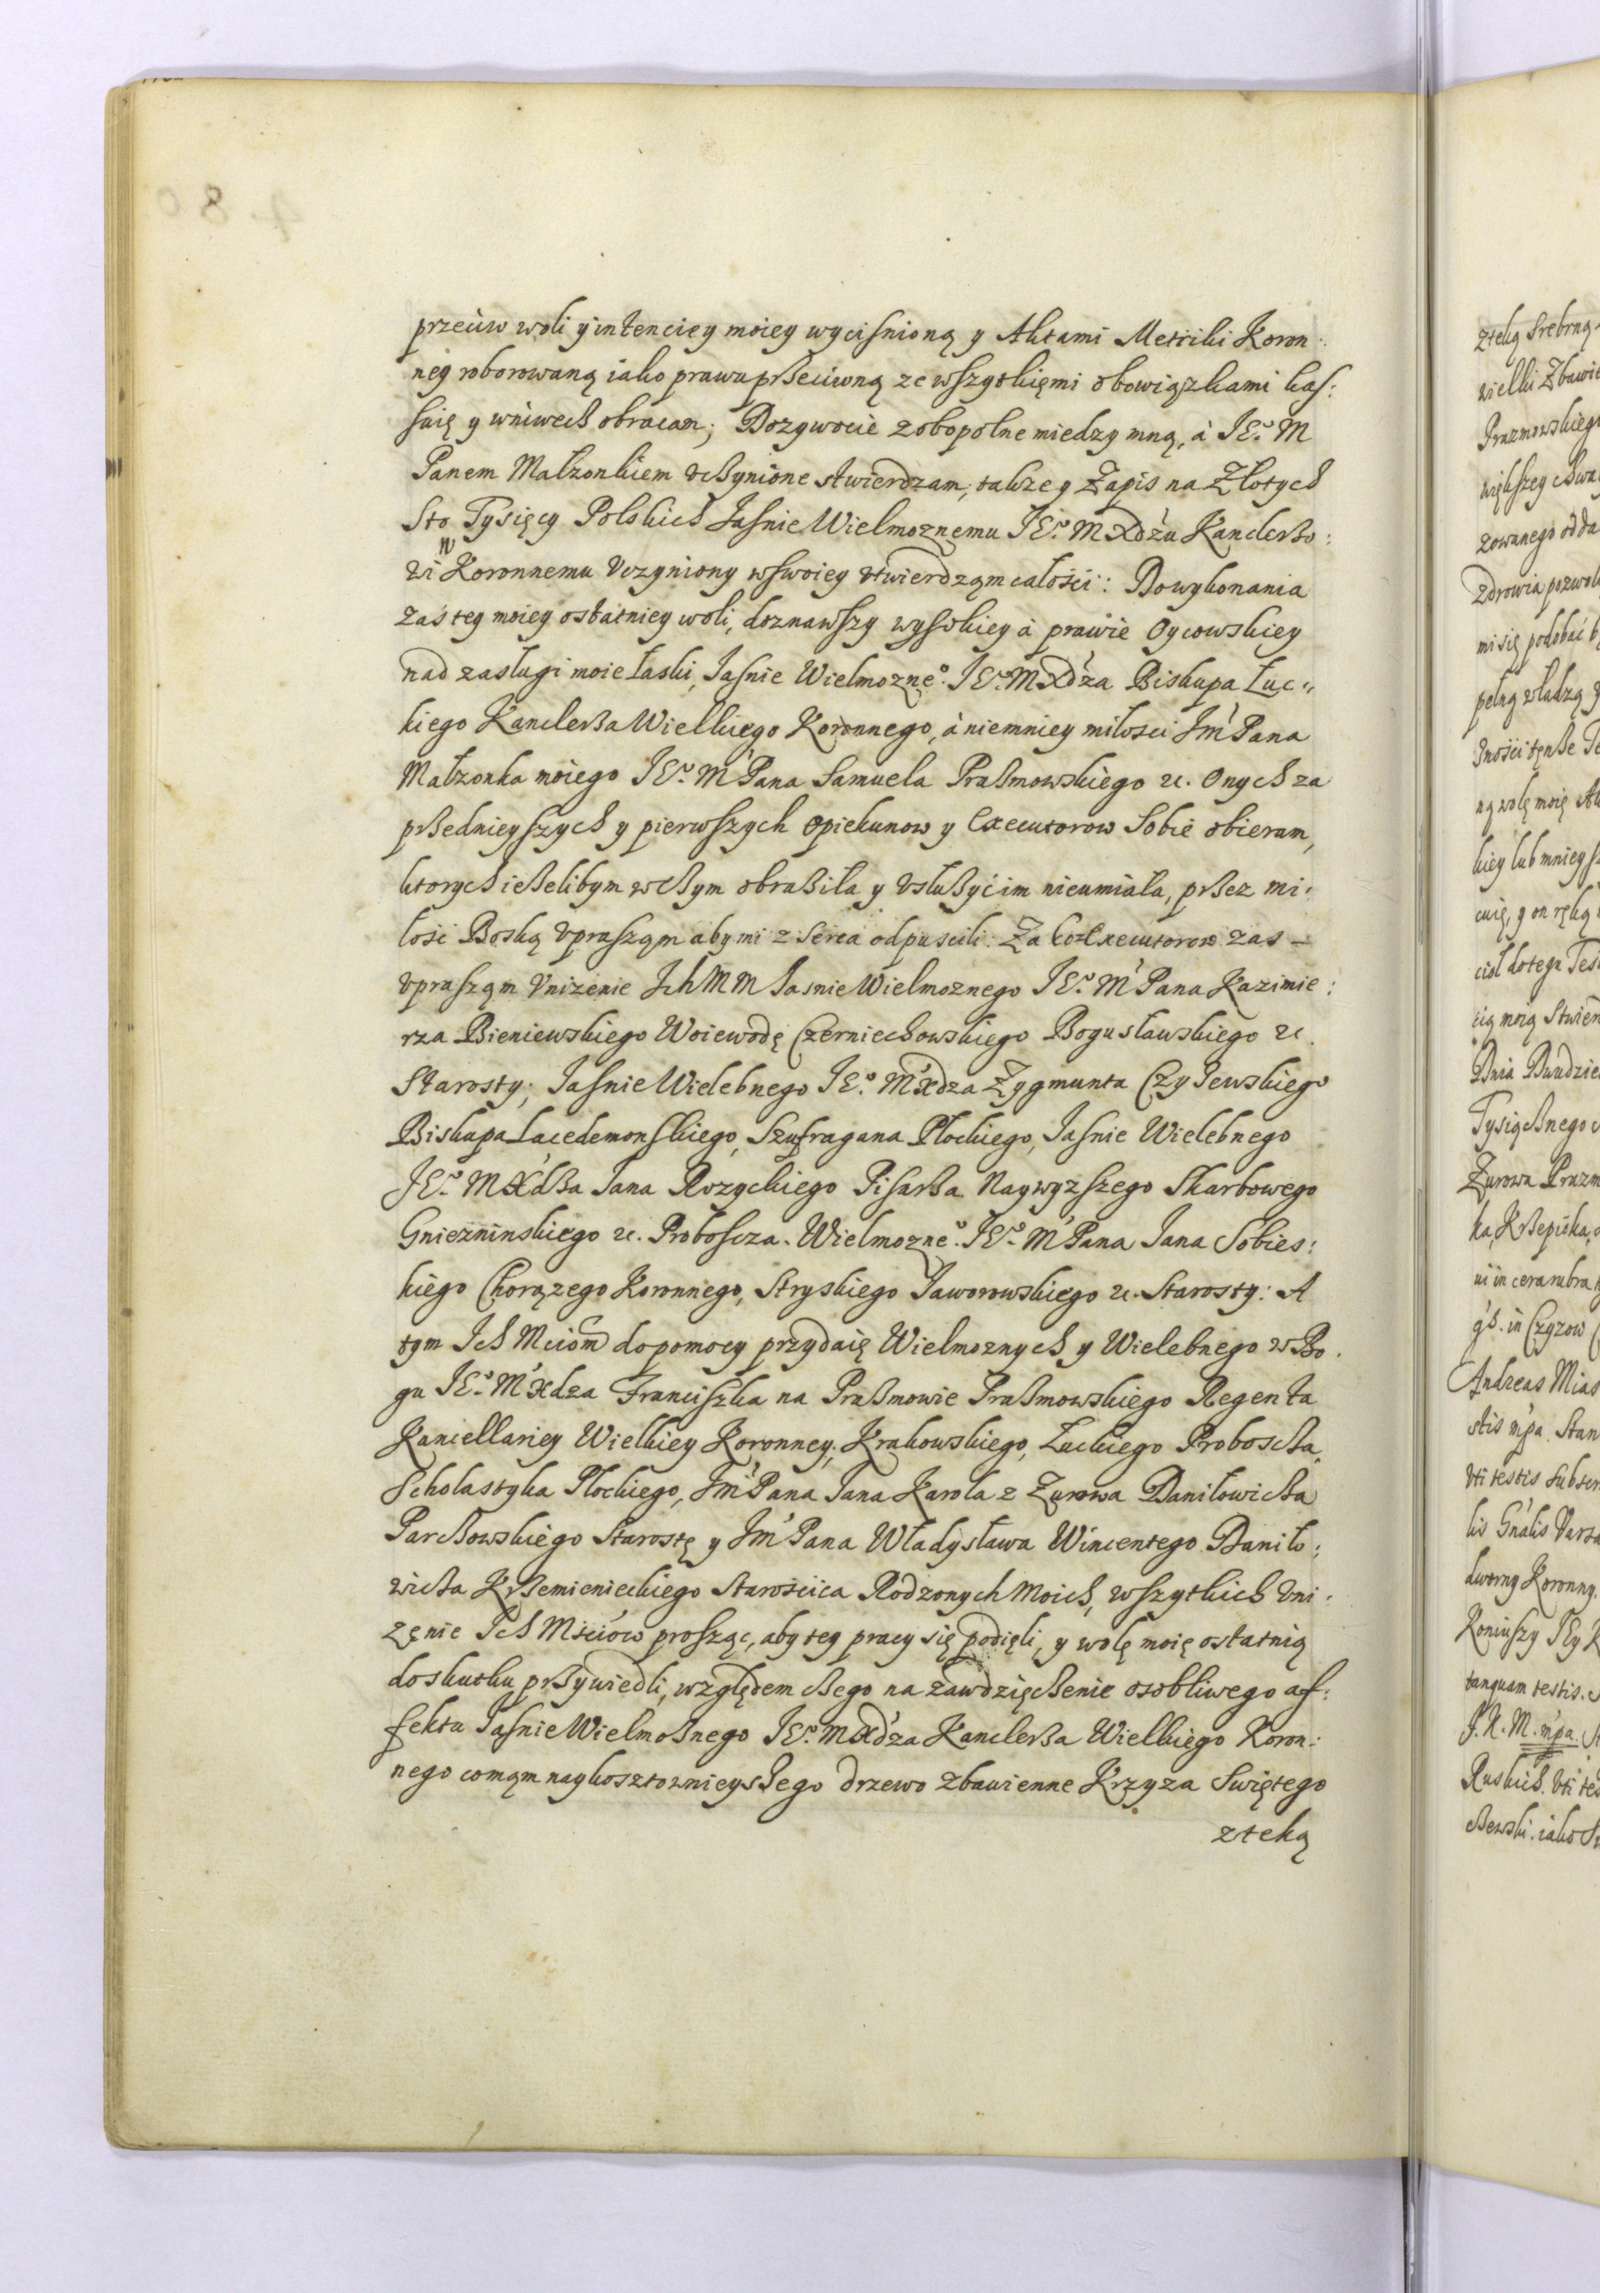 przeciw woli y intenciey moiey wycisnioną y Aktami Metriki Koron:
ney roborowaną iako prawu przeciwną ze wszytkięmi obowiązkami kas:
suię y wniwech obracam; Dozywocie zobopolne miedzy mną, à JE.º M
Panem Małzonkiem vczynione stwierdzam; takze y Zapis na Złotych
Sto Tysięcy Polskich Jasnie Wielmoznemu JE.º M Xdzu Kanclerzo:
wi W Koronnemu Vczyniony w swoiey vtwierdząm całości: Do wykonania
zaś tey moiey ostatniey woli, doznawszy wysokiey à prawie Oycowskiey
nad zasługi moie łaski, Jasnie Wielmozne.º JE.º M Xdza Biskupa Łuc:
kiego Kanclerza Wielkiego Koronnego, à niemniey miłosci Jm Pana
Małzonka moiego JE.º M Pana Samuela Prazmowskiego &c. Onych za
przednieyszych y pierwszych Opiekunow y Executorow Sobie obieram,
ktorych iezelibym w czym obraziła y vsłużyć im nieumiała, przez mi:
łość Boską vprasząm aby mi z serca odpuscili: Za CoExecutorow zas
vprasząm Vnizenie Jch MM Jasnie Wielmoznego JE.º M Pana Kazimie:
rza Bieniewskiego Woiewodę Czerniechowskiego Bogusławskiego &c.
Starosty; Jasnie Wielebnego JE.º M Xdza Zygmunta Czyzewskiego
Biskupa Lacedemonskiego, Szufragana Płockiego, Jasnie Wielebnego
JE.º M Xdza Jana Rozyckiego Pisarza Naywyzszego Skarbowego
Gniezninskiego &c. Proboscza. Wielmozne.º JE.º M Pana Jana Sobies:
kiego Chorązego Koronnego, Stryskiego Jaworowskiego &c. Starosty: A
tym Jch Mciom do pomocy przydaię Wielmoznych y Wielebnego w Bo:
gu JE.º M Xdza Franciszka na Prazmowie Prazmowskiego Regenta
Kancellariey Wielkiey Koronney, Krakowskiego, Łuckiego Proboscza,
Scholastyka Płockiego, Jm Pana Jana Karola z Zurowa Daniłowicza
Parczowskiego Starostę y Jm Pana Władysława Wincentego Daniło:
wicza Krzemienieckiego Starościca Rodzonych Moich, wszytkich Vni:
zęnie Jch Mściow prosząc, aby tey pracy się podięli, y wolę moię ostatnią
do skutku przywiedli, względem czego na zawdzięczenie osobliwego af:
fektu Jasnie Wielmoznego JE.º M Xdza Kanclerza Wielkiego Koron:
nego co mąm naykosztownieyszego drzewo zbawienne Krzyza Swiętego
z teką
z teką srebrną
wielki Zbawi
Prazmowskieg
większey chwa
zowanego odda
Zdrowia pozwol
mi się podobać b
pełną władzą y
ną wolę moię Ak
kiey lub mnieysz
cuię, y on ręką
cią moią Stwier
Zurowa Prazm
ka, Krzepicka,
ni in cera rubra
in Czyzow
Andreas Mias
stis mpa. Stan
Vti testis subscr
lis Gnalis Varsa
dworny Koronny.
Koniuszy JEy K
tanquam testis.
J.K.M. mpa.
Ruskich. Vti tes
czewski. iako